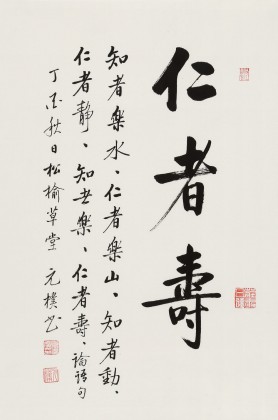 仁者壽
知者樂水、仁者樂山、知者動、
仁者靜、知者樂、仁者壽、論語句
丁酉秋日松榆草堂元樸書